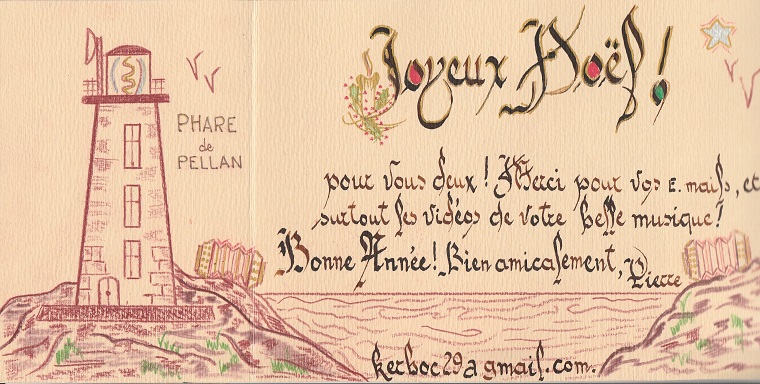 PHARE
de
PELLAN
Joyeux Noël !
pour vous deux ! Merci pour vos E. mails, et
surtout les vidéos de votre belle musique !
Bonne Année ! Bien amicalement,
Pierre
kerboc29a gmail.com.